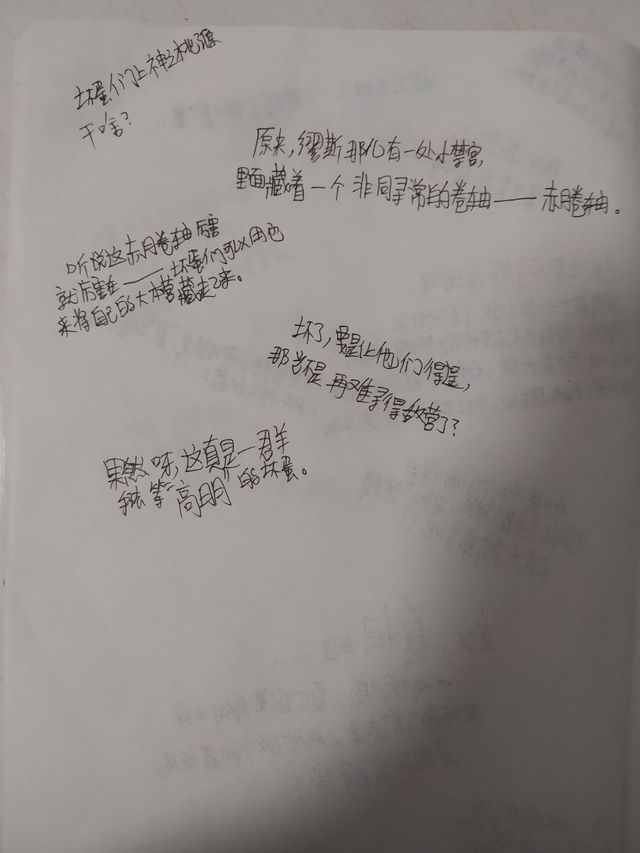 坏蛋们上神之桃源
干啥?
原来,缪斯那儿有一处小禁宫,
里面藏着一个非同寻常的卷轴——赤月卷轴。
听说这赤月卷轴厉害
就厉害在——坏蛋们可以用它
来将自己的大本营藏起来。
坏了,要是让他们得逞,
那岂不是再难寻得敌营了?
果然呀,这真是一群羊
手法等"高明"的坏蛋。